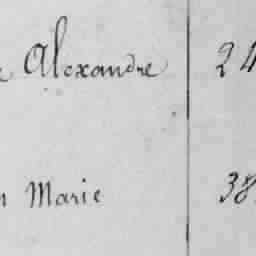 Alexandre 24
Marie 38